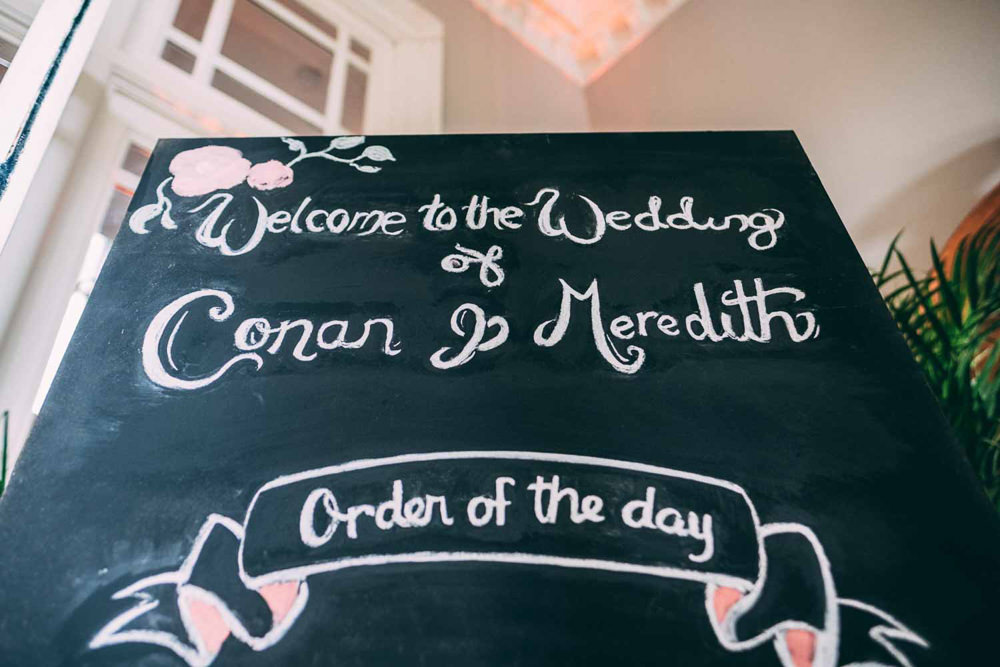 Welcome to the Wedding
of
Conan & Meredith
Order of the day